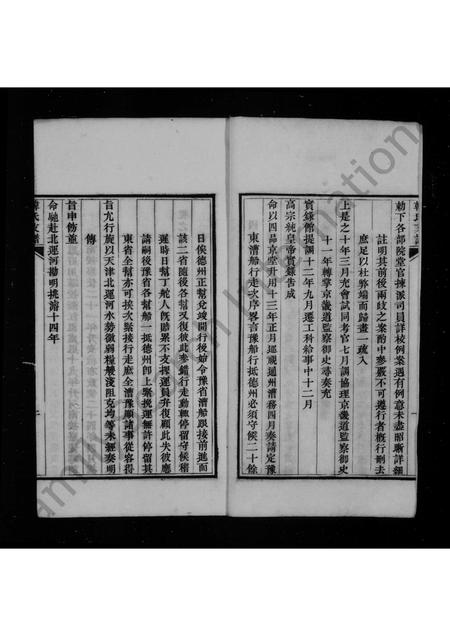 勅下各部院堂官揀派司員詳核例案遇有例意未盡眀晰詳細
註明其前後兩歧之案酌中參覈不可遵行者槪行刪去
庶足以杜弊端而歸畫一疏入
上是之十年三月充會試同考官七月調協理京畿道監察御史
十一年轉掌京畿道監察御史尋奏充
實錄館提調十二年九月遷工科給事中十二月
高宗純皇帝實錄吿成
命以四品京堂升用十三年正月巡視通州漕務四月奏請定豫
東漕船行走次序畧言豫船行抵德州必須守候二十餘
日俟德州正幫兌竣開行後始令豫省漕船跟接前進而
該二省隨後各幫又復彼此參錯行走動輒停留守候稽
遲時日幫丁舵人旣賠累不支挽運員弁復顧此失彼應
請嗣後豫省各幫船一抵德州卽上緊挽運無許停留其
東省全幫亦可挨次緊接行走庶全漕豫順諸事從容得
旨允行旋以天津北運河水勢微弱糧艘淺阻克均等未經奏明
傳
旨申飭並
命馳赴北運河勘明挑濬十四年
韓氏支譜